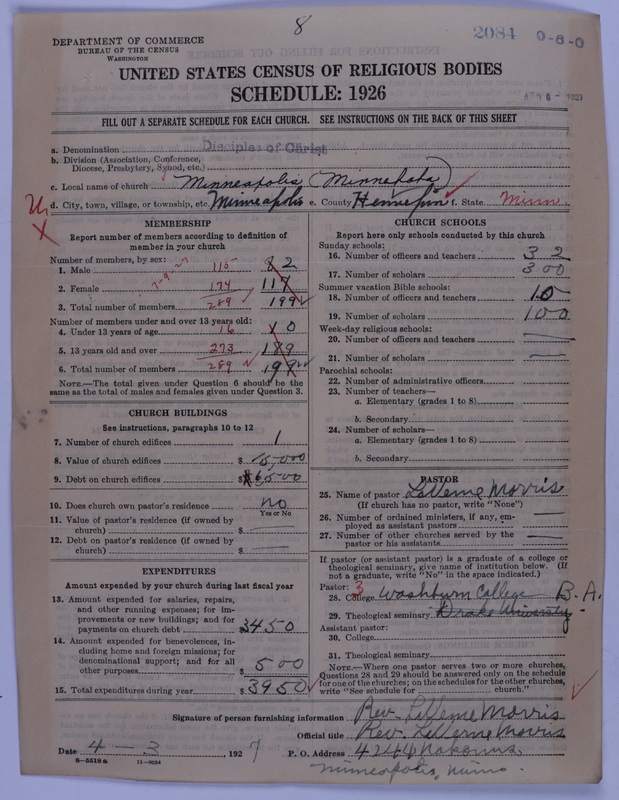 8
2084 0-6-0
DEPARTMENT OF COMMERCE
BUREAU OF THE CENSUS
WASHINGTON
UNITED STATES CENSUS OF RELIGIOUS BODIES
SCHEDULE: 1926
FILL OUT A SEPARATE SCHEDULE FOR EACH CHURCH. SEE INSTRUCTIONS ON THE BACK OF THIS SHEET
a. Denomination Disciples of Christ
b. Division (Association, Conference, Diocese, Presbytery, Synod, etc.)
c. Local name of church Minneapolis (Minnehaha)
d. City, town, village, or township, etc. Minneapolis e. County Hennepin f. State Minn.
MEMBERSHIP
Report number of members according to definition of
member in your church
Number of members, by sex:
1. Male 115 82
2. Female 174 117
3. Total number of members 289 199
Number of members under and over 13 years old:
4. Under 13 years of age 16 10
5. 13 years old and over 273 189
6. Total number of members 289 199
NOTE.—The total given under Question 6 should be the
same as the total of males and females given under Question 3.
CHURCH BUILDINGS
See instructions, paragraphs 10 to 12
7. Number of church edifices 1
8. Value of church edifices $ 15,000
9. Debt on church edifices $ 6500
10. Does church own pastor's residence no
Yes or No
11. Value of pastor's residence (if owned by
church) $
12. Debt on pastor's residence (if owned by
church) $
EXPENDITURES
Amount expended by your church during last fiscal year
13. Amount expended for salaries, repairs,
and other running expenses; for im-
provements or new buildings; and for
payments on church debt $3450
14. Amount expended for benevolences, in-
cluding home and foreign missions; for
denominational support; and for all
other purposes $ 500
15. Total expenditures during year $ 3950
CHURCH SCHOOLS
Report here only schools conducted by this church
Sunday schools:
16. Number of officers and teachers 32
17. Number of scholars 300
Summer vacation Bible schools:
18. Number of officers and teachers 10
19. Number of scholars 100
Week-day religious schools:
20. Number of officers and teachers —
21. Number of scholars —
Parochial schools:
22. Number of administrative officers
23. Number of teachers—
a. Elementary (grades 1 to 8)
b. Secondary
24. Number of scholars—
a. Elementary (grades 1 to 8)
b. Secondary
PASTOR
25. Name of pastor LaVerne Morris
(If church has no pastor, write "None")
26. Number of ordained ministers, if any, em-
ployed as assistant pastors —
27. Number of other churches served by the
pastor or his assistants —
If pastor (or assistant pastor) is a graduate of a college or
theological seminary, give name of institution below. (If
not a graduate, write "No" in the space indicated.)
Pastor: 3
28. College Washburn College B.A.
29. Theological seminary Drake University
Assistant pastor:
30. College
31. Theological seminary
NOTE.—Where one pastor serves two or more churches,
Questions 28 and 29 should be answered only on the schedule
for one of the churches; on the schedules for the other churches,
write "See schedule for church."
Signature of person furnishing information Rev. LaVerne Morris
Official title Rev. LaVerne Morris
Date 4 — 3 1927 P. O. Address 4244 Nokomis
Minneapolis, Minn.
8—5518a 11—9034